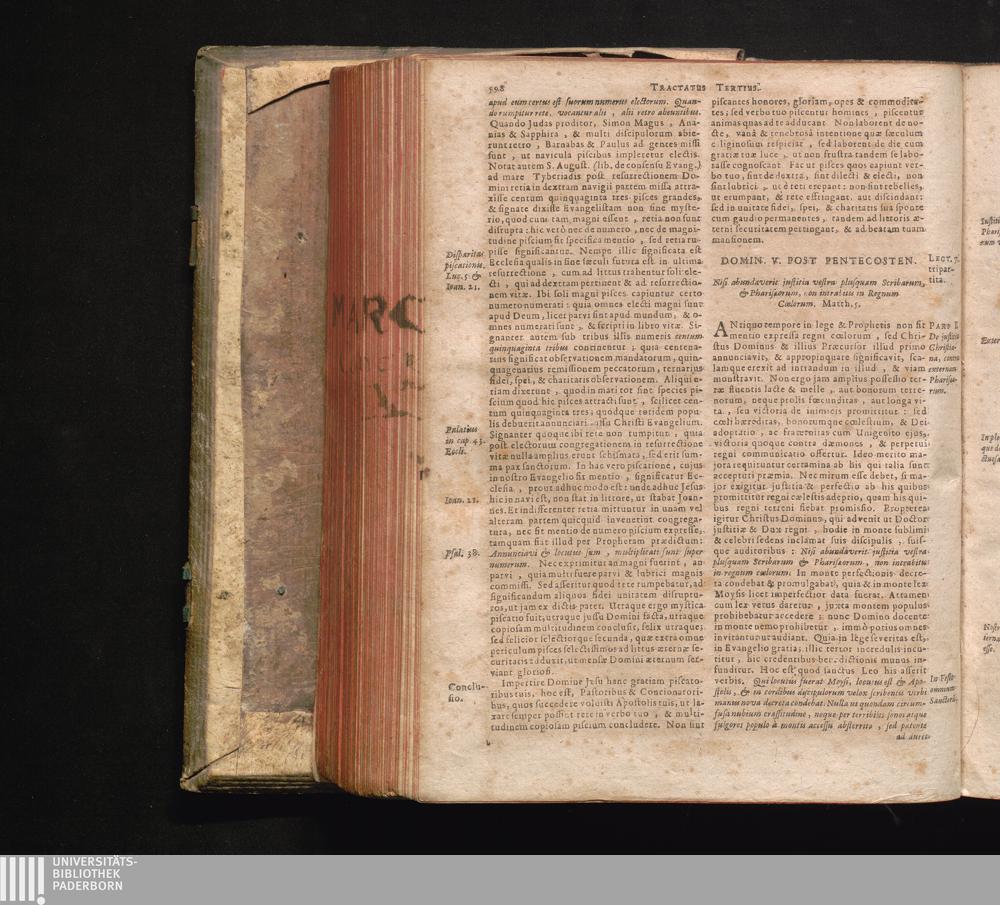 598 TRACTATUS TERTIUS.
apud eum certus est suorum numerus electorum. Quan-
do rumpitur rete, vocantur alii, alii retro abeuntibus.
Quando Judas proditor, Simon Magus, Ana-
nias & Sapphira, & multi discipulorum abie-
runt retro, Barnabas & Paulus ad gentes missi
sunt, ut navicula piscibus impleretur electis.
Notat autem S. August. (lib. de consensu Evang.)
ad mare Tyberiadis post resurrectionem Do-
mini retia in dextram navigii partem missa attra-
xisse centum quinquaginta tres pisces grandes,
& signate dixisse Evangelistam non sine myste-
rio, quod cum tam magni essent, retia non sunt
disrupta: hic verò nec de numero, nec de magni-
tudine piscium fit specifica mentio, sed retia ru-
pisse significantur. Nempe illic significata est
Ecclesia qualis in fine sæculi futura est in ultima
resurrectione, cum ad littus trahentur soli ele-
cti, qui ad dextram pertinent & ad resurrectio-
nem vitæ. Ibi soli magni pisces capiuntur certo
numero numerati: quia omnes electi magni sunt
apud Deum, licet parvi sint apud mundum, & o-
mnes numerati sunt, & scripti in libro vitæ. Si-
gnanter autem sub tribus illis numeris centum
quinquaginta tribus continentur: quia centena-
rius significat observationem mandatorum, quin-
quagenarius remissionem peccatorum, ternarius
fidei, spei, & charitatis observationem. Aliqui e-
tiam dixerunt, quod in mari tot sint species pi-
scium quod hic pisces attracti sunt, scilicet cen-
tum quinquaginta tres; quodque totidem popu-
lis debuerit annunciari jussu Christi Evangelium.
Signanter quoque ibi rete non rumpitur, quia
post electorum congregationem in resurrectione
vitæ nulla amplius erunt schismata, sed erit sum-
ma pax sanctorum. In hac vero piscatione, cujus
in nostro Evangelio fit mentio, significatur Ec-
clesia, prout adhuc modo est: unde adhuc Jesus
hic in navi est, non stat in littore, ut stabat Joan-
nes. Et indifferenter retia mittuntur in unam vel
alteram partem quicquid invenerint congrega-
tura, nec fit mentio de numero piscium expresse,
tamquam fiat illud per Prophetam prædictum:
Annunciavi & locutus sum, multiplicati sunt super
numerum. Nec exprimitur an magni fuerint, an
parvi, quia multi fuere parvi & lubrici magnis
commissi. Sed asseritur quod rete rumpebatur, ad
significandum aliquos fidei unitatem disruptu-
ros, ut jam ex dictis patet. Utraque ergo mystica
piscatio fuit, utraque jussu Domini facta, utraque
copiosam multitudinem conclusit, felix utraque;
sed felicior selectiorque secunda, quæ extra omne
periculum pisces selectissimos ad littus æternæ se-
curitatis adduxit, ut mensæ Domini æternum ser-
viant gloriosi.
Impertire Domine Jesu hanc gratiam piscato-
ribus tuis, hoc est, Pastoribus & Concionatori-
bus, quos succedere voluisti Apostolis tuis, ut la-
xare semper possint rete in verbo tuo, & multi-
tudinem copiosam piscium concludere. Non sint
Disparitas
piscationis.
Luc. 5. &
Ioan. 21.
Palatius
in cap. 43.
Eccli.
Ioan. 21.
Psal. 38.
Conclu-
sio.
piscantes honores, gloriam, opes & commodita-
tes; sed verbo tuo piscentur homines, piscentur
animas quas ad te adducant. Non laborent de no-
cte, vanâ & tenebrosâ intentione quæ sæculum
caliginosum respiciat, sed laborent de die cum
gratiæ tuæ luce, ut non frustra tandem se labo-
rasse cognoscant. Fac ut pisces quos capiunt ver-
bo tuo, sint de dextra, sint dilecti & electi, non
sint lubrici, ut è reti erepant: non sint rebelles,
ut erumpant, & rete effringant, aut discindant:
sed in unitate fidei, spei, & charitatis sua sponte
cum gaudio permanentes, tandem ad littoris æ-
terni securitatem pertingant, & ad beatam tuam
mansionem.
DOMIN. V. POST PENTECOSTEN.
Nisi abundaverit justitia vestra plusquam Scribarum,
& Pharisæorum, non intrabitis in Regnum
Cœlorum. Matth. 5.
ANtiquo tempore in lege & Prophetis non fit
mentio expressa regni cœlorum, sed Chri-
stus Dominus & illius Præcursor illud primo
annunciavit, & appropinquare significavit, sca-
lamque erexit ad intrandum in illud, & viam
monstravit. Non ergo jam amplius possessio ter-
ræ fluentis lacte & melle, aut bonorum terre-
norum, neque prolis fœcunditas, aut longa vi-
ta, seu victoria de inimicis promittitur: sed
cœli hæreditas, bonorumque cœlestium, & Dei
adoptatio, ac fraternitas cum Unigenito ejus,
victoria quoque contra dæmones, & perpetui
regni communicatio offertur. Ideo merito ma-
jora requiruntur certamina ab his qui talia sunt
accepturi præmia. Nec mirum esse debet, si ma-
jor exigitur justitia & perfectio ab his quibus
promittitur regni cælestis adeptio, quam his qui-
bus regni terreni fiebat promissio. Propterea
igitur Christus Dominus, qui advenit ut Doctor
justitiæ & Dux regni, hodie in monte sublimi
& celebri sedens inclamat suis discipulis, suis-
que auditoribus: Nisi abundaverit justitia vestra
plusquam Scribarum & Pharisæorum, non intrabitis
in regnum cœlorum. In monte perfectionis decre-
ta condebat & promulgabat, quia & in monte lex
Moysis licet imperfectior data fuerat. Attamen
cum lex vetus daretur, juxta montem populus
prohibebatur accedere: nunc Domino docente
in monte nemo prohibetur, immò potius omnes
invitantur ut audiant. Quia in lege severitas est,
in Evangelio gratia; illic terror incredulis incu-
titur, hic credentibus benedictionis munus in-
funditur. Hoc est quod sanctus Leo his asserit
verbis. Qui locutus fuerat Moysi, locutus est & Apo-
stolis, & in cordibus discipulorum velox scribentis verbi
manus nova decreta condebat. Nulla ut quondam circum-
fusa nubium crassitudine, neque per terribiles sonos atque
fulgores populo à montis accessu absterrito, sed patente
ad aures
LECT. 7.
tripar-
tita.
PARS I.
De justitia
Christia-
na, contra
externam
Pharisæo-
rum.
In Festo
omnium
Sanctorum.
MARC
UNIVERSITÄTS-
BIBLIOTHEK
PADERBORN